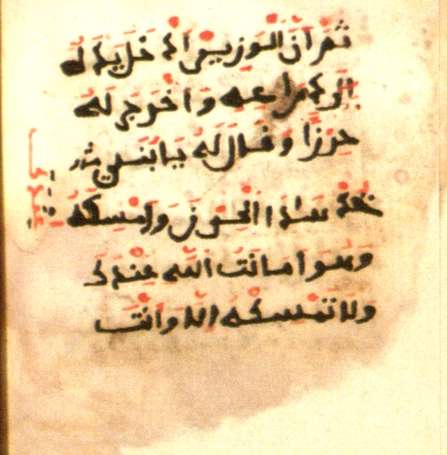 ثم ان الوزير ادخل يده
ذراعه واخرج له
حرزا وقال له يا بني
خذ هذا الحرز وامسكه
وهو امانت الله عندك
ولا تمسكه الا وانت